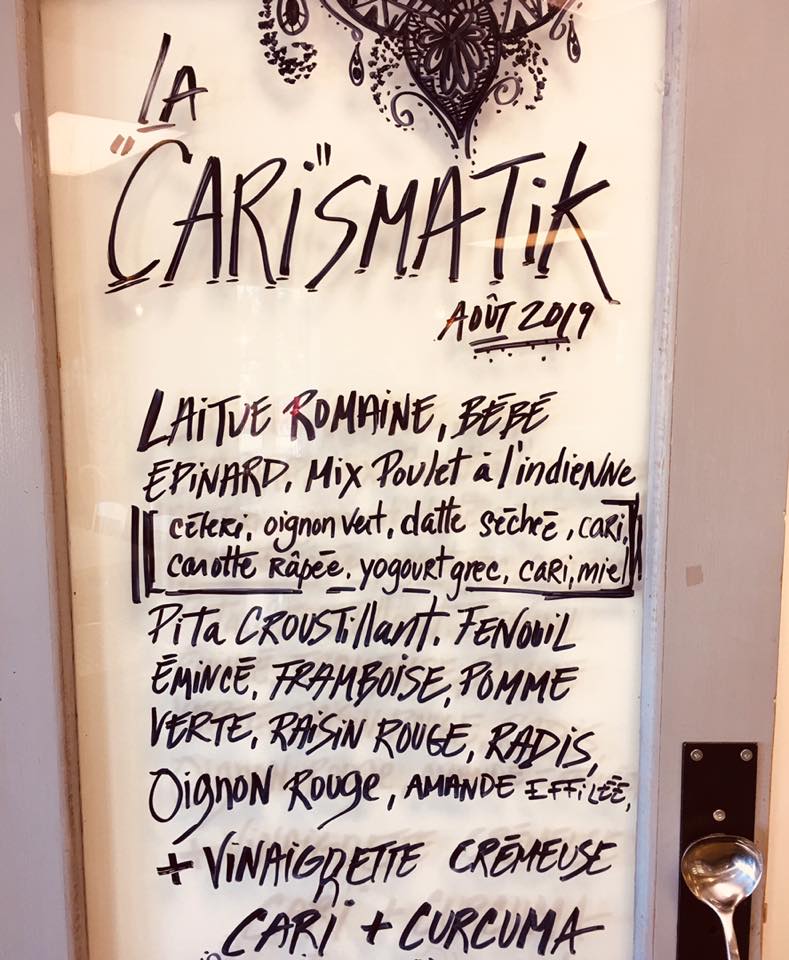 LA
"CARi"SMATiK
AOÛT 2019
LAiTUE ROMAiNE, BÉBÉ
EPiNARD, Mix Poulet à l'indiENNE
cÉleri, oignon vert, datte sÉchÉE, cari,
carotte Râpée, yogourt grec, cari, miel
Pita CROUSTillant, FENOUiL
ÉMiNCÉ, FRAMBOiSE, POMME
VERTE, RAiSiN ROUGE, RADiS,
OigNON ROUge, AMANDE EFFiLÉE,
+ ViNAiGRETTE CRÉMEUSE
CARi + CURCUMA